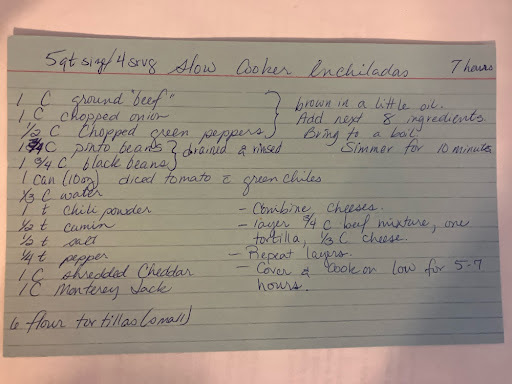 5 qt size/4 srvg Slow Cooker Enchiladas 7 hours
1 C ground "beef"
1 C chopped onion
1/2 C Chopped green peppers
brown in a little oil.
Add next 8 ingredients.
Bring to a boil.
Simmer for 10 minutes
1 3/4 C pinto beans
1 3/4 C black beans
drained & rinsed
1 can (10 oz) diced tomato c green chiles
1/3 C water
1 t chili powder
1/2 t cumin
1/2 t salt
1/4 t pepper
1 C shredded Cheddar
1 C Monterey Jack
- Combine cheeses.
- layer 3/4 C beef mixture, one
tortilla, 1/3 C cheese.
- Repeat layers.
- Cover & Cook on low for 5-7
hours.
6 flour tortillas (small)